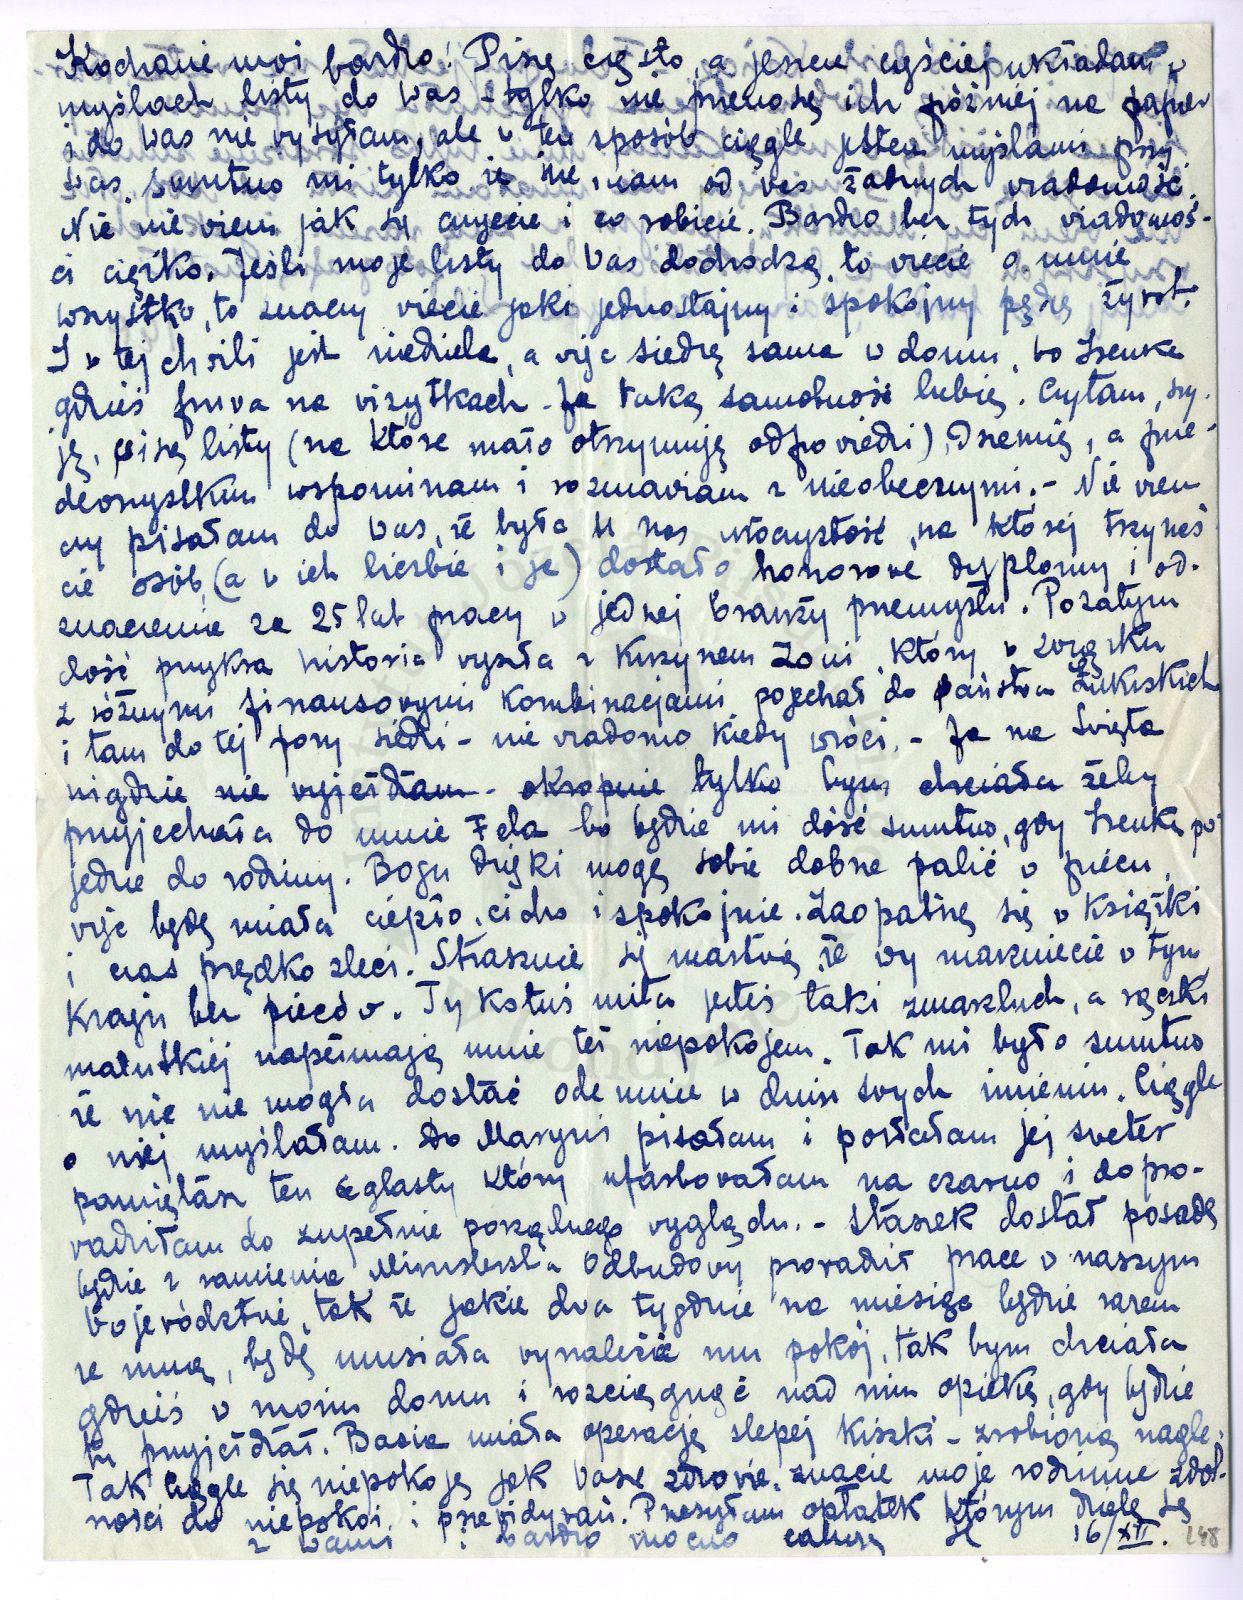 Kochanie moi bardzo! Piszę często, a jeszcze częściej układam w
myślach listy do Was – tylko nie przenoszę ich później na papier
i do Was nie wysyłam, ale w ten sposób ciągle jestem myślami przy
Was. Smutno mi tylko że nie mam od Was żadnych wiadomości.
Nic nie wiem jak się czujecie i co robicie. Bardzo bez tych wiadomoś-
ci ciężko. Jeśli moje listy do Was dochodzą, to wiecie o mnie
wszystko, to znaczy wiecie jaki jednostajny i spokojny pędzę żywot.
I w tej chwili jest niedziela, a więc siedzę sama w domu, bo Irenka
gdzieś fruwa na wizytkach – Ja taką samotność lubię. Czytam, szy-
ję, piszę listy (na które mało otrzymuję odpowiedzi), drzemię, a prze-
dewszystkim wspominam i rozmawiam z nieobecnymi. – Nie wiem
czy pisałam do Was, że była u nas uroczystość, na której trzynaś
cie osób, (a w ich liczbie i ja) dostało honorowe dyplomy i od-
znaczenie za 25 lat pracy w jednej branży przemysłu. Pozatym
dość przykra historia wyszła z kuzynem Zoni, który w związku
z różnymi finansowymi kombinacjami pojechał do państwa
i tam do tej pory siedzi – nie wiadomo kiedy wróci. – Ja na Święta
nigdzie nie wyjeżdżam – okropnie tylko bym chciała żeby
przyjechała do mnie Fela bo będzie mi dość smutno, gdy Irenka po
jedzie do rodziny. Bogu Dzięki mogę sobie dobrze palić w piecu,
więc będę miała ciepło, cicho i spokojnie. Zaopatrzę się w książki
i czas prędko zleci. Strasznie się martwię, że wy marzniecie w tym
kraju bez pieców. Ty Kotuś miła jesteś taki zmarzluch, a rączki
malutkiej napełniają mnie też niepokojem. Tak mi było smutno
że nic nie mogła dostać odemnie w dniu swych imienin. Ciągle
o niej myślałam. Do Marysi pisałam i posłałam jej sweter
pamiętasz ten ceglasty który ufarbowałam na czarno i dopro-
wadziłam do zupełnie porządnego wyglądu. – Stasek dostał posadę
będzie z ramienia Ministerstwa Odbudowy prowadził prace w naszym
Województwie, tak że jakie dwa tygodnie na miesiąc będzie razem
ze mną, będę musiała wynaleźć mu pokój, tak bym chciała
gdzieś w moim domu i rozciągnąć nad nim opiekę, gdy będzie
tu przyjeżdżał. Basia miała operację ślepej kiszki – zrobioną nagle.
Tak ciągle się niepokoję jak Wasze zdrowie. Znacie moje rodzinne zdol-
ności do niepokoi i przewidywań. Przesyłam opłatek którym dzielę się
z Wami bardzo mocno całuję H 16/XII. 148